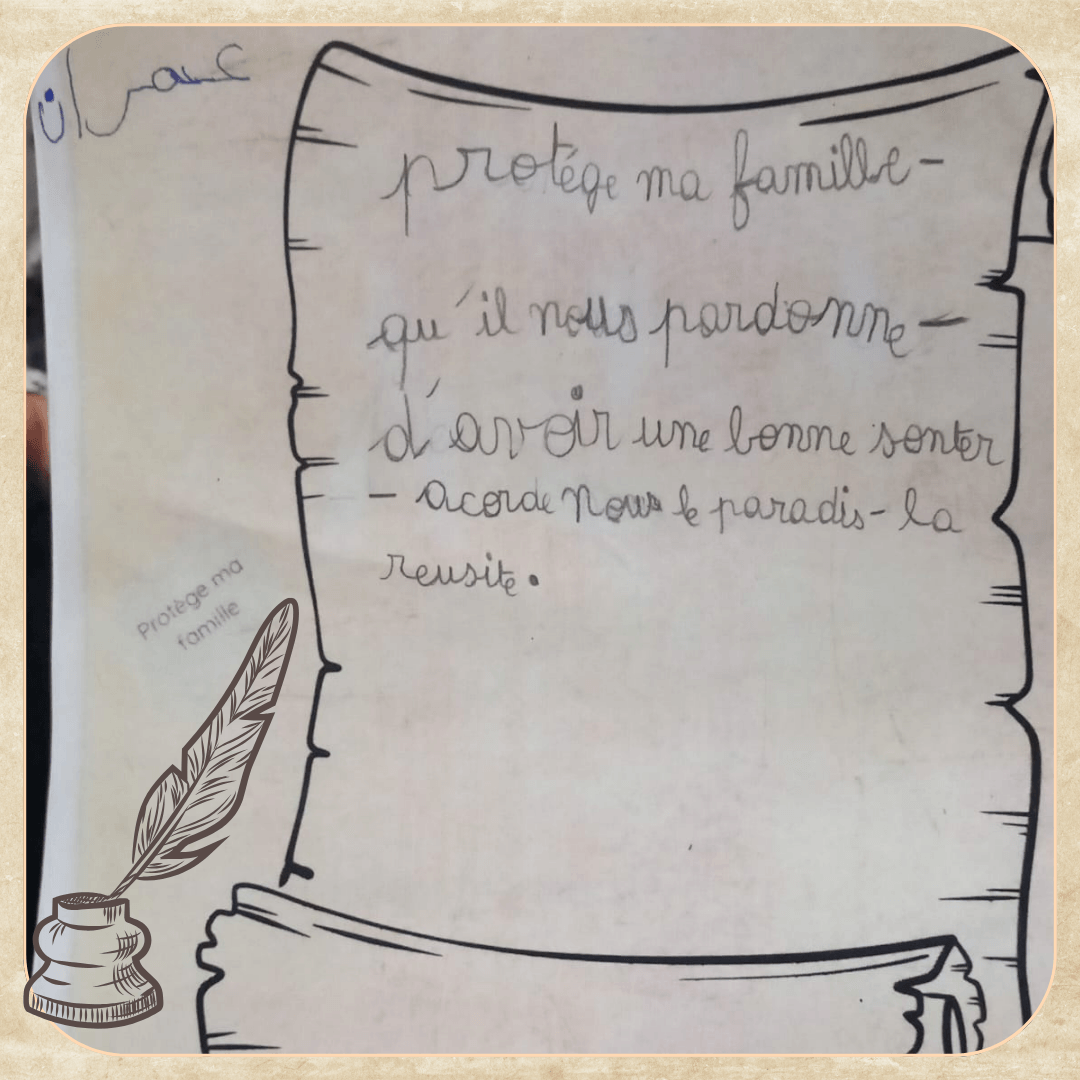 عمران
protége ma famille -
qu'il nous pardonne -
d'avoir une bonne santer
- acorde nous le paradis - la
reusite.
Protège ma
famille